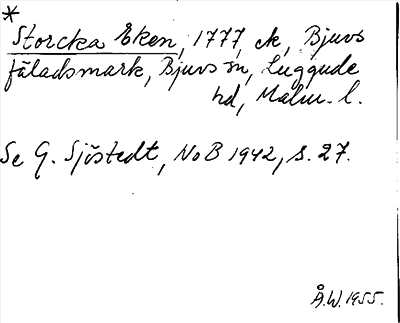 *
Storcka Eken, 1777, ek, Bjuvs
fäladsmark, Bjuvs sn, Luggude
hd, Malm. l.
Se G. Sjöstedt, NoB 1942, s. 27.
Å.W. 1955.